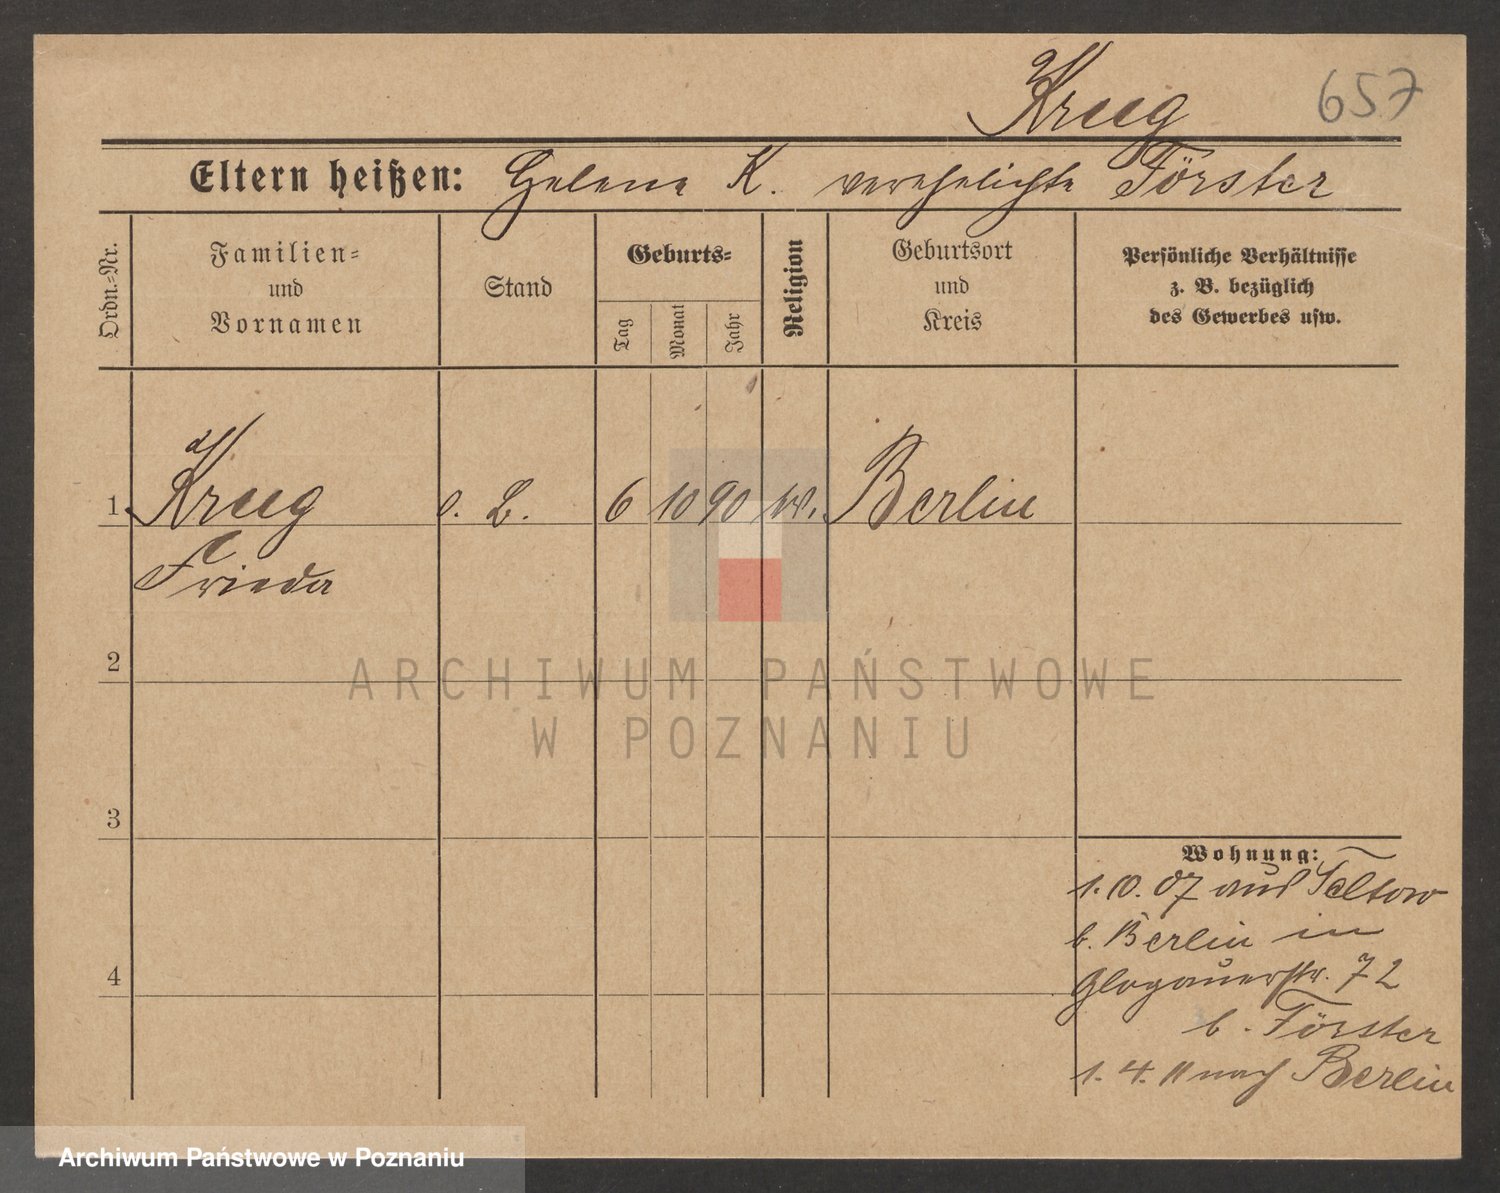 Krug 657
Eltern heißen: Helene K. verehelichte Förster
Ordn.-Nr.
Familien-
und
Vornamen
Stand
Geburts-
Tag
Monat
Jahr
Religion
Geburtsort
und
Kreis
Persönliche Verhältnisse
z. B. bezüglich
des Gewerbes usw.
1 Krug o. B. 6 10 90 Berlin
Frieda
2
3
4
Wohnung:
1. 10. 07 aus Teltow
b. Berlin in
Glogauerstr. 72
b. Förster
1. 4. 11 nach Berlin
ARCHIWUM PAŃSTWOWE
W POZNANIU
Archiwum Państwowe w Poznaniu